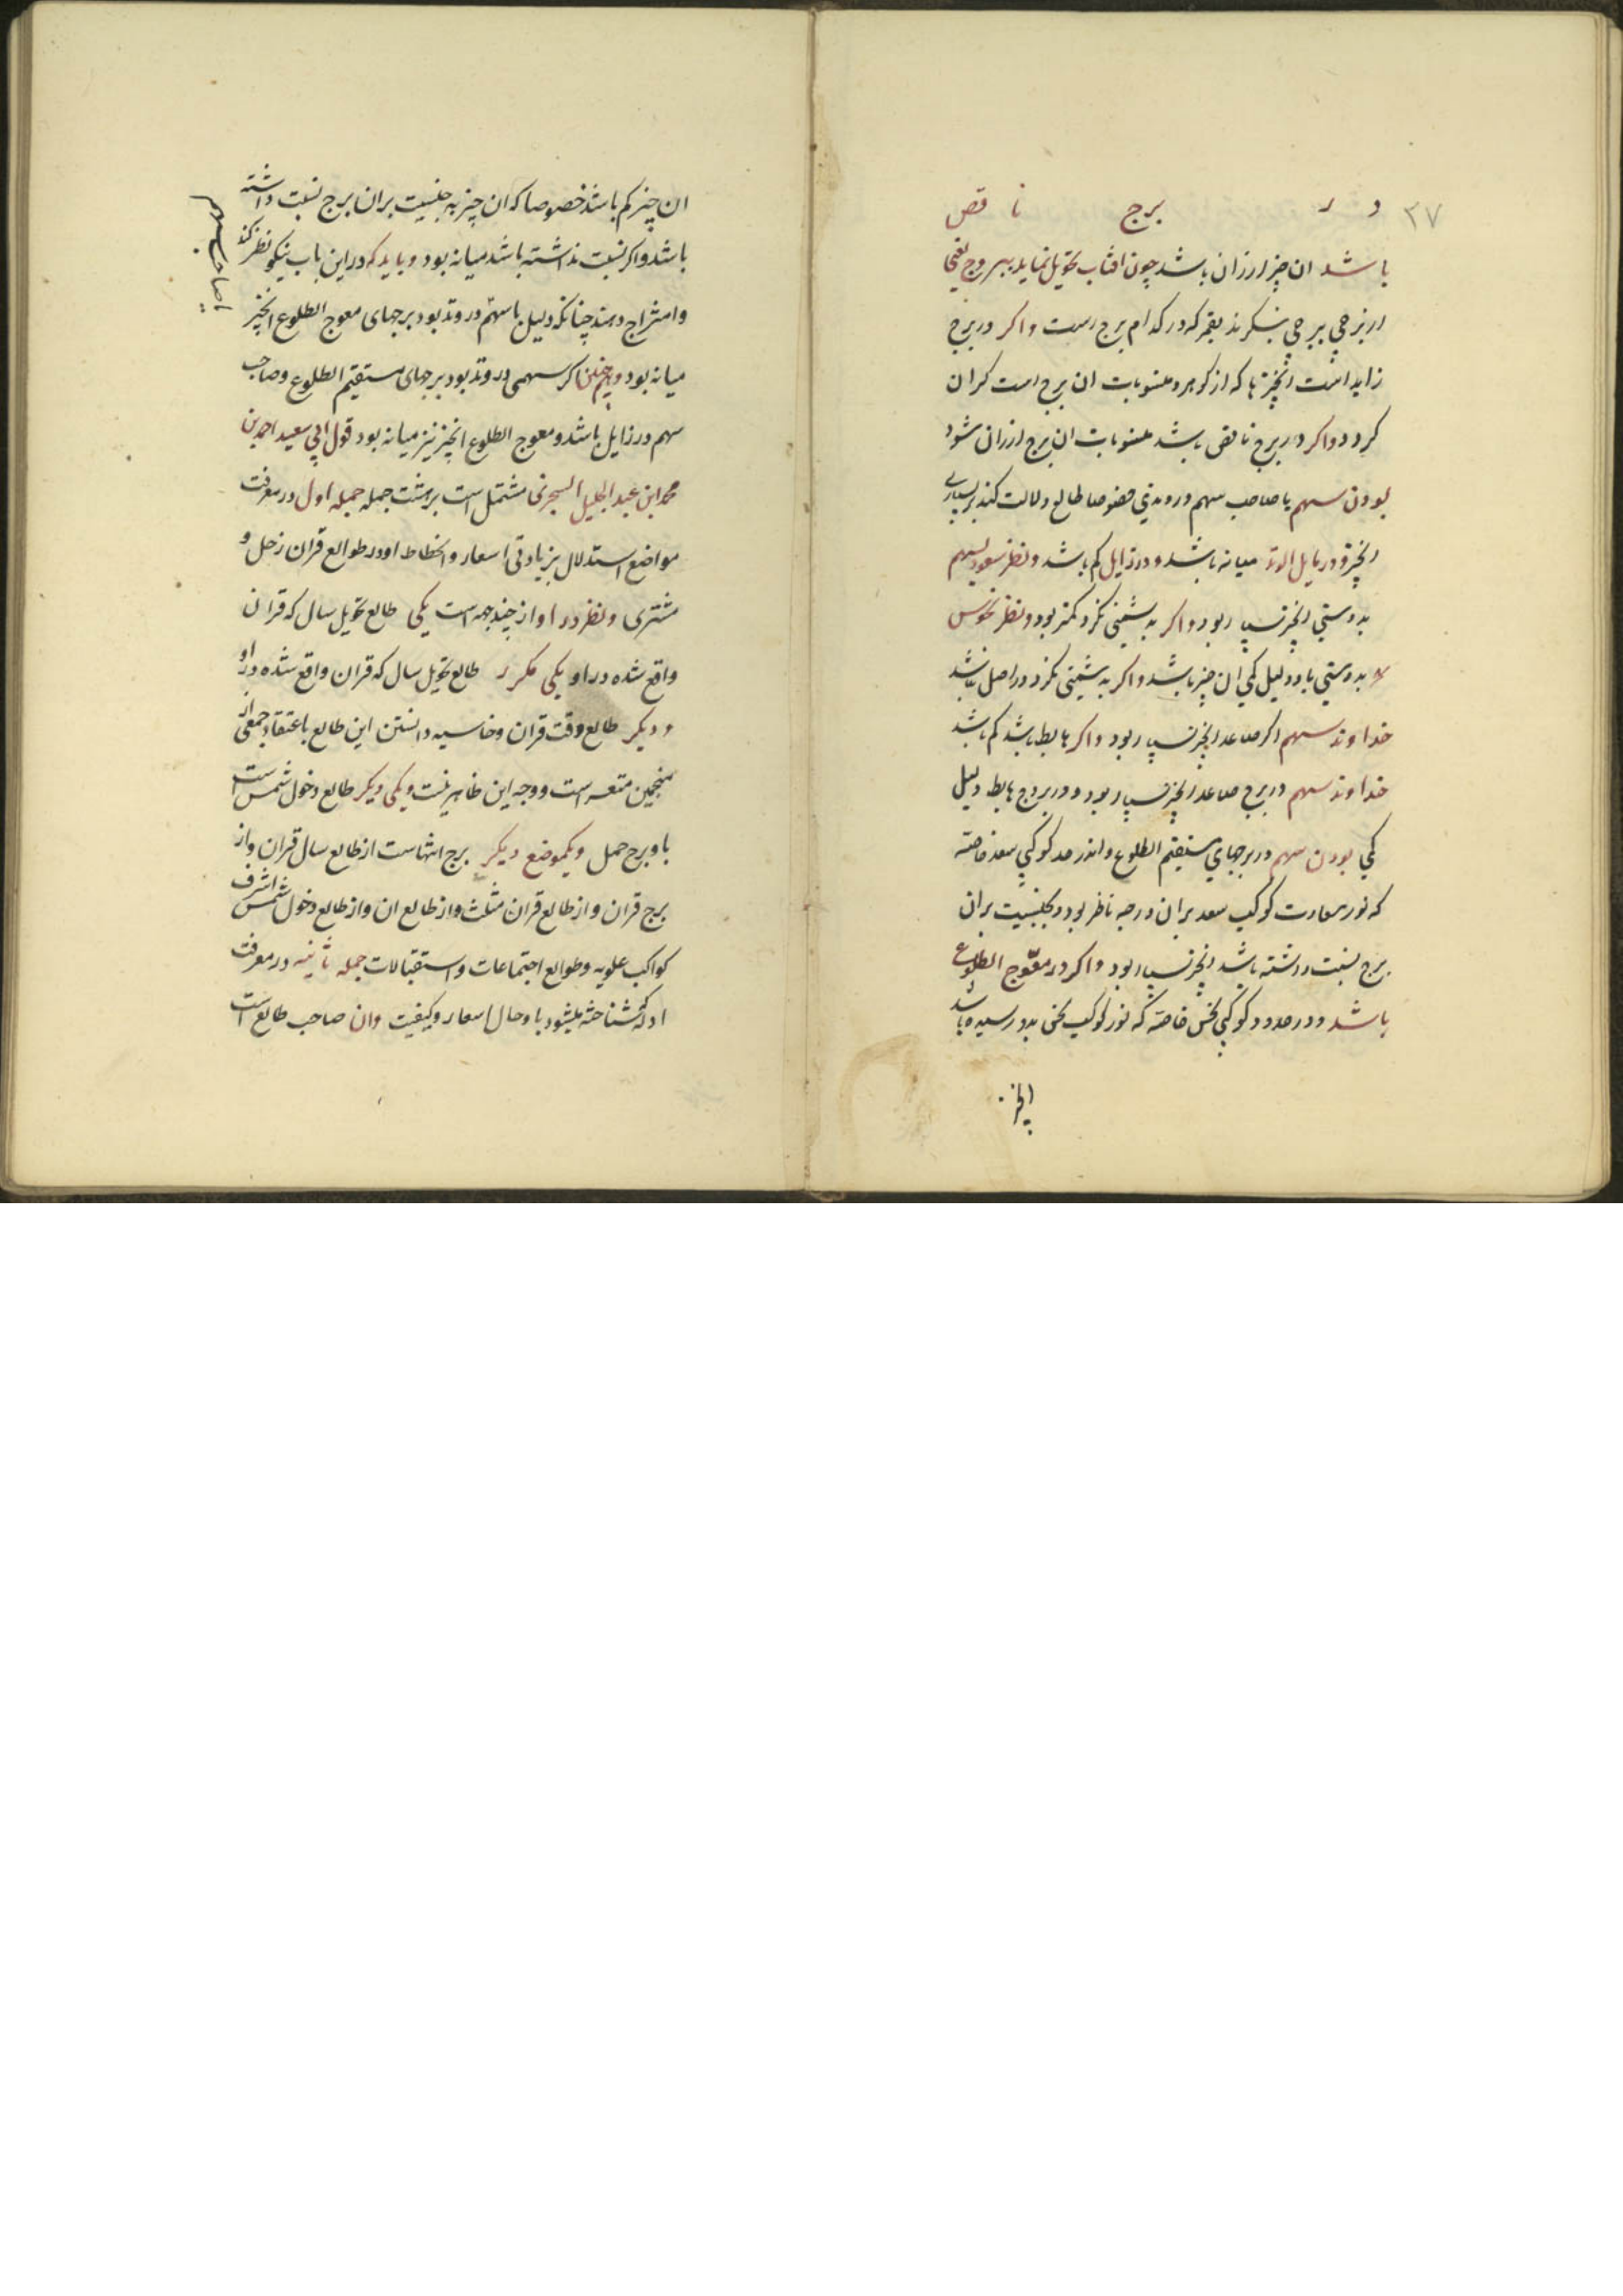 ۳۷ در برج ناقص
باشد ان چیز ارزان باشد چون افتاب تحویل نماید ببروج یعنی
از برجی ببرجی بنگرند بقمر که در کدام برج است واکر در برج
زاید است انچیزها که از کوهر و منسوبات ان برج است کران
کردد واکر در برج ناقص باشد منسوبات ان برج ارزان شود
بودن سهم یا صاحب سهم در وتدی خصوصا طالع دلالت کند بر بسیاری
انچیز و در مایل الوتد میانه باشد و در زایل کم باشد و نظر سعود بسهم
بدوستی انچیز بسیار بود واکر بدشمنی نکرد کمتر بود و نظر نحوس
بدوستی باد دلیل کمی ان چیز باشد واکر بدشمنی نکرد در اصل نباشد
خداوند سهم اکر صاعد انچیز بسیار بود واکر هابط باشد کم باشد
خداوند سهم در برج صاعد انچیز بسیار بود و در بروج هابط دلیل
کمی بودن سهم در برجهای مستقیم الطلوع و اندر حد کوکبی سعد خاصه
که نور سعادت کوکب سعد بران درجه ناظر بود و بجنسیت بران
برج نسبت داشته باشد انچیز بسیار بود واکر در معوج الطلوع
باشد و در حدود کوکبی نحس خاصه که نور کوکب نحس بدو رسیده باشد
انچیز
ان چیز کم باشد خصوصا که ان چیز به جنسیت بران برج نسبت داشته
باشد واکر نسبت نداشته باشد میانه بود و باید که در این باب نیکو نظر کند
وامتزاج دهند چنانکه دلیل با سهم در وتد بود برجهای معوج الطلوع انچیز
میانه بود و همچنین اکر سهمی در وتد بود برجهای مستقیم الطلوع وصاحب
سهم در زایل باشد و معوج الطلوع انچیز نیز میانه بود قول ابی سعید احمد بن
محمد ابن عبد الجلیل السجزی مشتمل است بر هشت جمله جمله اول در معرفت
مواضع استدلال بزیادتی اسعار وانحطاط او در طوالع قران زحل و
مشتری و نظر در او از چند جهه است یکی طالع تحویل سال که قران
واقع شده در او یکی مکرر طالع تحویل سال که قران واقع شده در او
و دیکر طالع وقت قران و دانستن این طالع باعتقاد جمعی از
منجمین متعسر است و وجه این ظاهر نیست و یکی دیکر طالع دخول شمس است
باو برج حمل و یکموضع دیکر برج انتهاست از طالع سال قران واز
برج قران واز طالع قران مثلث واز طالع ان واز طالع دخول شمس اشرف
کواکب علویه و طوالع اجتماعات و استقبالات جمله ثانیه در معرفت
ادله که شناخته میشود باو حال اسعار و کیفیت وان صاحب طالع است